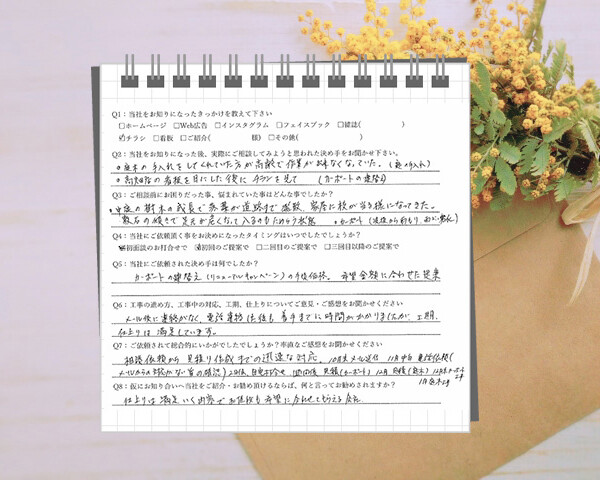 Q1：当社をお知りになったきっかけを教えて下さい
□ホームページ □Web広告 □インスタグラム □フェイスブック □雑誌( )
☑チラシ □看板 □ご紹介( 様) □その他( )
Q2：当社をお知りになった後、実際にご相談してみようと思われた決め手をお聞かせ下さい。
・庭木の手入れをしてくれていた方が高齢で作業が出来なくなっていた。(庭の手入れ)
・高知店の看板を目にした後に チラシを見て (カーポートの建替え)
Q3：ご相談前にお困りだった事、悩まれていた事はどんな事でしたか？
・中庭の樹木の成長で落葉が道路まで 家屋に枝が当る様になってきた。
敷石の 足元が悪くなって 状態 ・カーポート
Q4：当社にご依頼頂く事をお決めになったタイミングはいつでしたでしょうか？
初面談のお打合せで ☑初回のご提案で □二回目のご提案で □三回目以降のご提案で
Q5：当社にご依頼された決め手は何でしたか？
カーポートの建替え(リニューアルキャンペーン)の手頃価格。希望金額に合わせた提案
Q6：工事の進め方、工事中の対応、工期、仕上りについてご意見・ご感想をお聞かせください
メール後に連絡がなく、電話連絡 着手までに時間がかかりましたが、工期、
仕上りは満足しています。
Q7：ご依頼されて総合的にいかがでしたでしょうか？率直なご感想をお聞かせください
相談依頼から見積り作成までの迅速な対応、10月末メール送信 11月中旬 電話依頼(
メールからの 確認) 現地打合せ 見積(カーポート) 12月
Q8：仮にお知り合いへ当社をご紹介・お勧め頂けるならば、何と言ってお勧めされますか？
仕上りは満足いく内容で 希望に合わせてもらえる会社